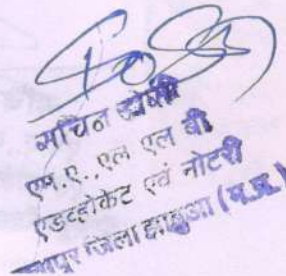 सचिन जोशी
एम.ए., एल एल बी
एडव्होकेट एवं नोटरी
जिला झाबुआ (म.प्र.)